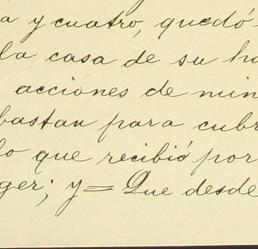 a y cuatro, quedó
la casa de su ha
acciones de min
bastan para cubr
lo que recibió por
ger; y= Que desde